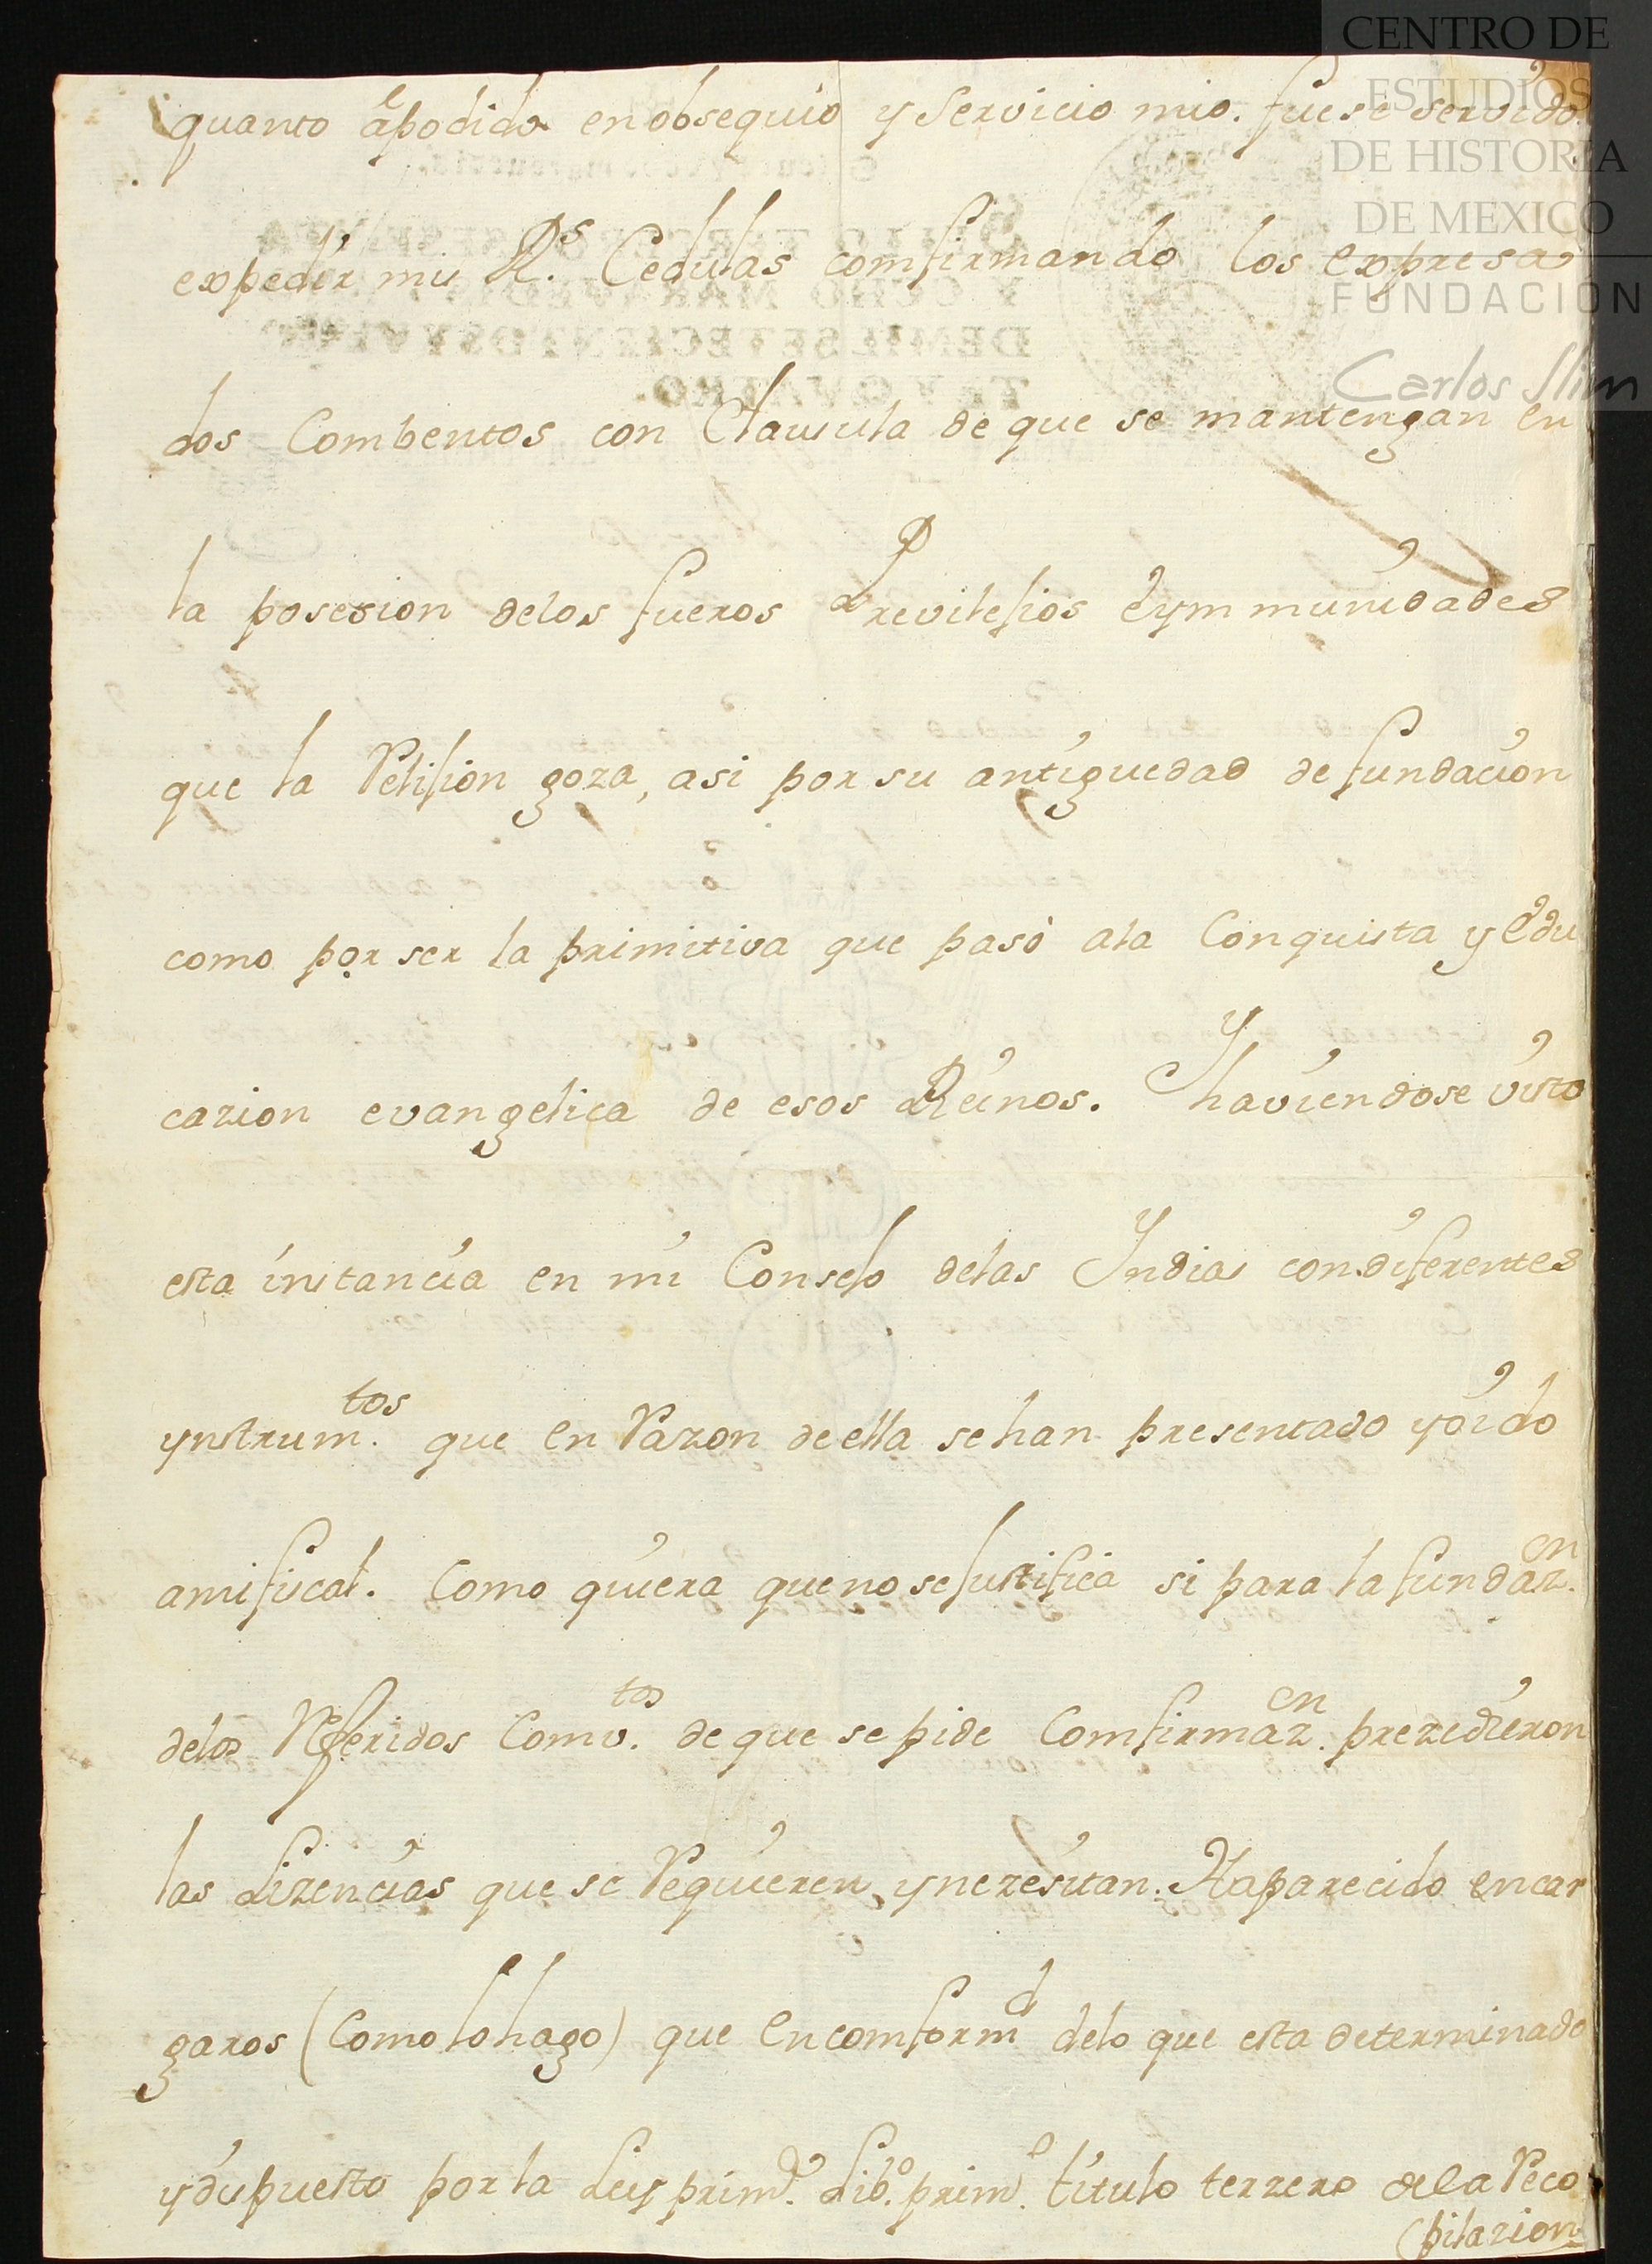 CENTRO DE
ESTUDIOS
DE HISTORIA
DE MEXICO
FUNDACION
Carlos Slim
quanto apodido en obsequio y Servicio mio. fuese servido
expedir mis R.s Cedulas comfirmando los expresa
dos Combentos con Clausula de que se mantengan en
la posesion delos fueros Previlesios é ymmunidades
que la Relision goza, asi por su antiguedad de fundacion
como por ser la primitiva que pasó ala Conquista y edu
cazion evangelica de esos Reinos. Y haviendose visto
esta instancia en mi Consejo delas Yndias con diferentes
ynstrum.tos que en Razon de ella se han presentado y oido
ami fiscal. Como quiera que no se Justifica si para la fundaz.en
delos Referidos Comv.tos de que se pide Comfirmaz.en prezedieron
las Lizencias que se Requieren, y nezesitan. Ha parecido encar
garos (Como lo hago) que en comformd delo que esta determinado
y dispuesto por la Ley prim.a Lib.o prim.o titulo terzero dela Reco
pilazion